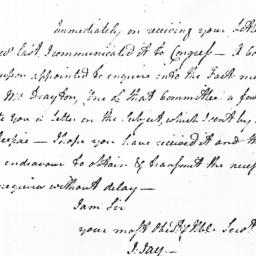 Immediately on receiving your Lette
last, I communicated it to Congress – A Com
upon appointed to enquire into the Facts me
Mr Drayton, One of that Committee a few
te you a Letter on the Subject, which I sent by
– I hope you have received it and th
endeavour to obtain & transmit the necess
require without delay –
I am Sir
your most Obedt & Hble Servt
J. Jay –